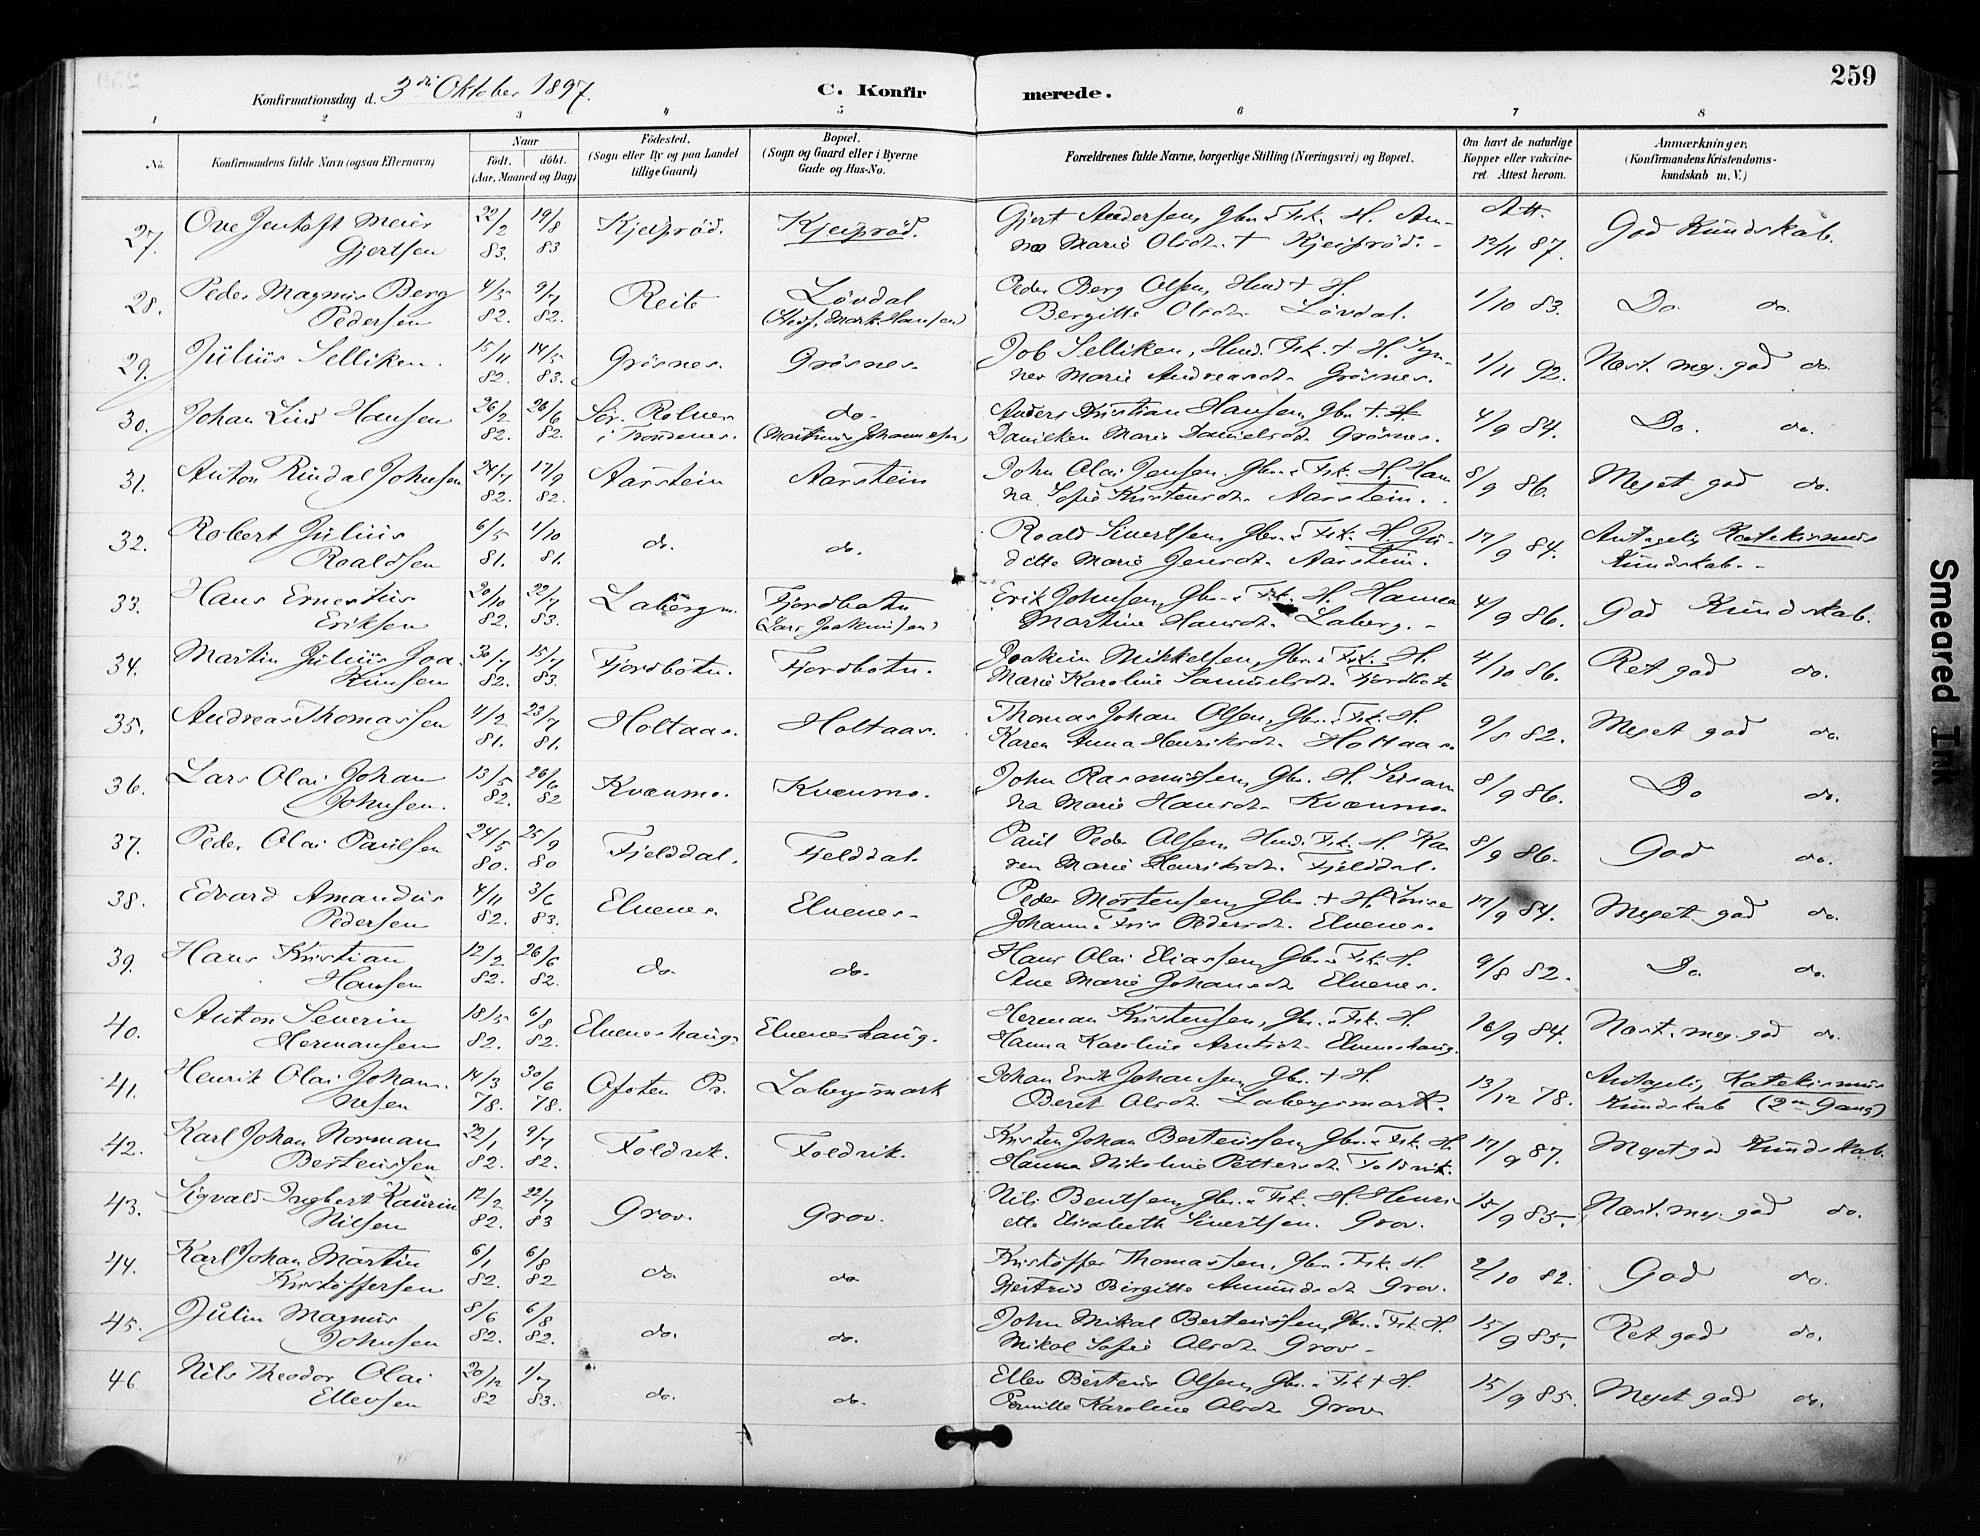 259
Konfirmationsdag d. 3die Oktober 1897. C. Konfirmerede.
1 2 3 4 5 6 7 8
No. Konfirmandens fulde Navn (ogsaa Efternavn) Naar födt. döbt. (Aar, Maaned og Dag) Födested. (Sogn eller By og paa Landet tillige Gaard) Bopæl. (Sogn og Gaard eller i Byerne Gade og Hus-No. Forældrenes fulde Navne, borgerlige Stilling (Næringsvei) og Bopæl. Om havt de naturlige Kopper eller vakcineret. Attest herom. Anmærkninger, (Konfirmandens Kristendomskundskab m. V.)
27. Ove Jentoft Meier 22/2 19/8 Kjeiprød. Kjeiprød. Gjert Andersen, Gbr. & Fsk. H. An- Att. God Kundskab.
Gjertsen 83. 83 na Marie Olsdt. + Kjeiprød. 12/11 87.
28. Peder Magnus Berg 4/5 9/7 Reite Løvdal Peder Berg Olsen, Husm. + H. 1/10 83. Do. do.
Pedersen 82. 82. (Husf. Mark. Hansen) Bergitte Olsdt. Løvdal.
29. Julius Selliken. 15/11 14/5 Grøsnes. Grøsnes. Job Selliken, Husm. Fsk. + H. Syn- 1/11 92. Næst. meg. god do.
82. 83. nev Marie Andreasdt. Grøsnes.
30. Johan Lind Hansen 26/2 26/6 Sør. Rolnes do. Anders Kristian Hansen, Gbr. + H. 4/9 84. Do. do.
82. 82. i Trondenes. (Martinus Johannesen) Daniken Marie Danielsdt. Grøsnes.
31. Anton Rindal Johnsen 24/7 17/9 Aarstein Aarstein John Olai Jensen. Gbr. & Fsk. H. Han- 8/9 86. Meget god do.
82. 82. na Sofie Kristensdt. Aarstein.
32. Robert Julius 6/5 1/10 do. do. Roald Sivertsen, Gbr. & Fsk. H. Ju- 17/9 84. Antagelig Katekismus
Roaldsen 81. 81. dette Marie Jensdt. Aarstein. Kundskab.
33. Hans Ernestius 20/10 22/7 Laberg. Fjordbotn Erik Johnsen, Gbr. & Fsk. H. Hanna 4/9 86. God Kundskab.
Eriksen 82. 83. (Lars Joakimsen) Martine Hansdt. Laberg.
34. Martin Julius Joa- 30/7 15/7 Fjordbotn. Fjordbotn. Joakim Mikkelsen, Gbr. & Fsk. H. 4/10 86. Ret god do.
kimsen 82. 83. Marie Karoline Samuelsdt. Fjordbotn
35. Andreas Thomassen 4/2 23/7 Holtaas. Holtaas. Thomas Johan Olsen, Gbr. & Fsk. H. 9/8 82. Meget god do.
81. 81. Karen Anna Henriksdt. Holtaas.
36. Lars Olai Johan 13/5 26/6 Kvænmo. Kvænmo. John Rasmussen, Gbr. H. Susan- 8/9 86. Do do.
Johnsen. 82. 82 na Marie Hansdt. Kvænmo.
37. Peder Olai Paulsen 24/5 25/9 Fjelddal. Fjelddal. Paul Peder Olsen, Husm. Fsk. H. Ka- 8/9 86. God do.
80. 80 ren Marie Henriksdt. Fjelddal.
38. Edvard Amandus 4/11 3/6 Elvenes. Elvenes. Peder Mortensen, Gbr. + H. Lovise 17/9 84. Meget god do.
Pedersen 82. 83. Johanna Fris Pedersdt. Elvenes.
39. Hans Kristian 12/2 26/6 do. do. Hans Olai Eliassen, Gbr. & Fsk. H. 9/8 82. Do. do.
Hansen 82. 82. Ane Marie Johansdt. Elvenes.
40. Anton Severin 18/5 6/8 Elveneshaug. Elveneshaug. Herman Kristensen, Gbr. & Fsk. H. 16/9 84. Næst. meg. god do.
Hermansen 82. 82. Hanna Karoline Arntsdt. Elveneshaug.
41. Henrik Olai Johan- 14/3 30/6 Ofoten Pr. Labergsmark Johan Erik Johansen, Gbr. + H. 13/12 78. Antagelig Katekismus
nesen 78. 78. Beret Olsdt. Labergsmark. Kundskab (2den Gang)
42. Karl Johan Norman 22/1 9/7 Foldvik. Foldvik. Kristen Johan Berteussen, Gbr. & Fsk. H. 17/9 87. Meget god Kundskab.
Berteussen 82. 82. Hanna Nikoline Pettersdt. Foldvik.
43. Sigvald Ingbert Kaurin 12/2 22/7 Grov. Grov. Nils Bentsen, Gbr. & Fsk. H. Henri- 15/9 85. Næst. meg. god do.
Nilsen 82. 83 ette Elisabeth Sivertsen. Grov.
44. Karl Johan Martin 6/1 6/8 do. do. Kristoffer Thomassen, Gbr. Fsk. H. 2/10 82. God do.
Kristoffersen 82. 82 Gjertrud Birgitte Amundsdt. Grov.
45. Julin Magnus 8/6 6/8 do. do. John Mikal Berteussen, Gbr. & Fsk. H. 15/9 85. Ret god do.
Johnsen 82. 82. Mikal Sofie Olsdt. Grov.
46 Nils Theodor Olai 20/12 1/7 do. do. Ellev Berteus Olsen, Gbr. & Fsk + H. 15/9 85. Meget god do.
Ellevsen 82 83. Pernille Karoline Olsdt. Grov
Smeared Ink